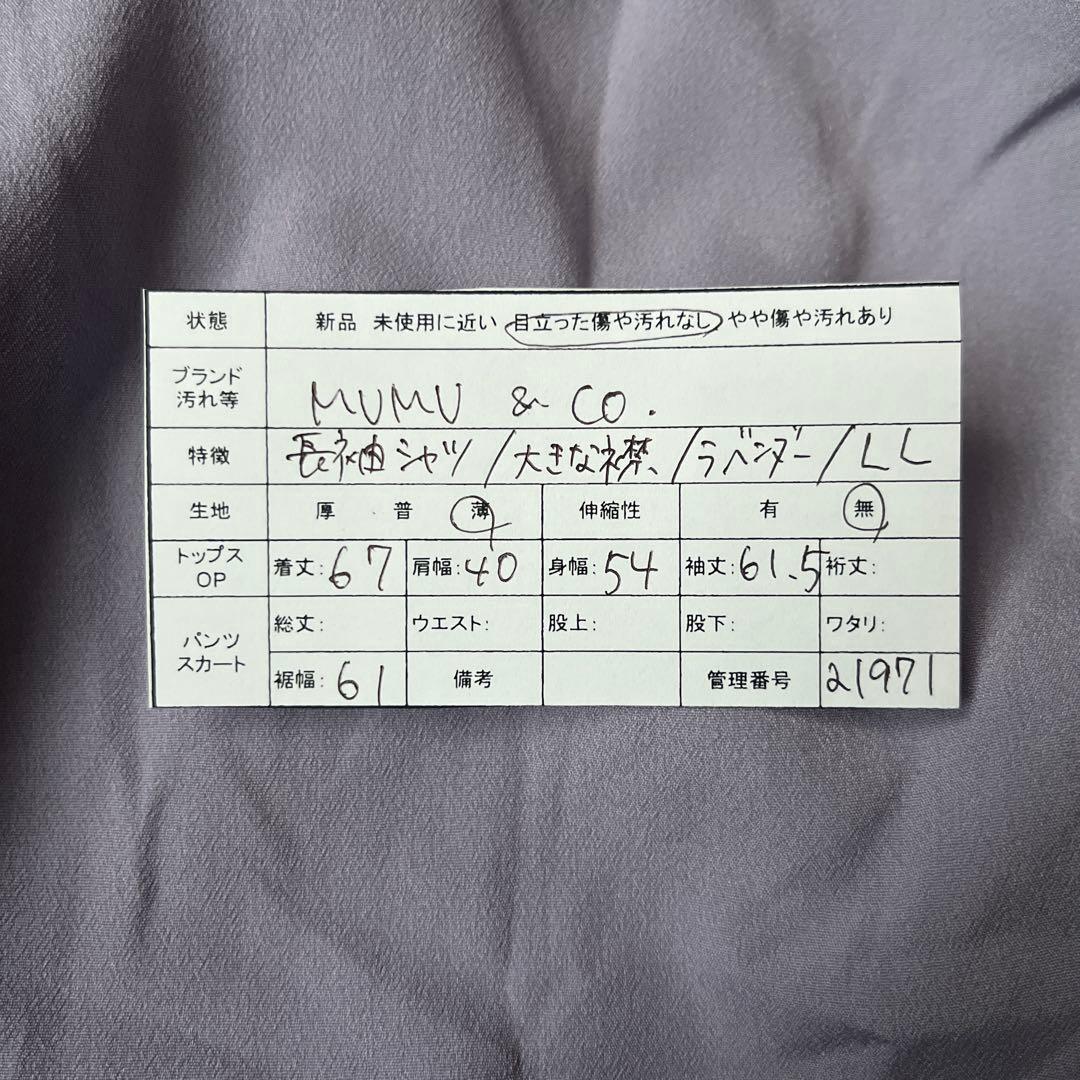 状態 新品 未使用に近い 目立った傷や汚れなし やや傷や汚れあり
ブランド
汚れ等
MUMU & CO.
特徴 長袖シャツ/大きな襟、/ラベンダー/LL
生地 厚 普 薄 伸縮性 有 無
トップス
OP
着丈:67 肩幅:40 身幅:54 袖丈:61.5 裄丈:
パンツ
スカート
総丈: ウエスト: 股上: 股下: ワタリ:
裾幅:61 備考 管理番号 21971